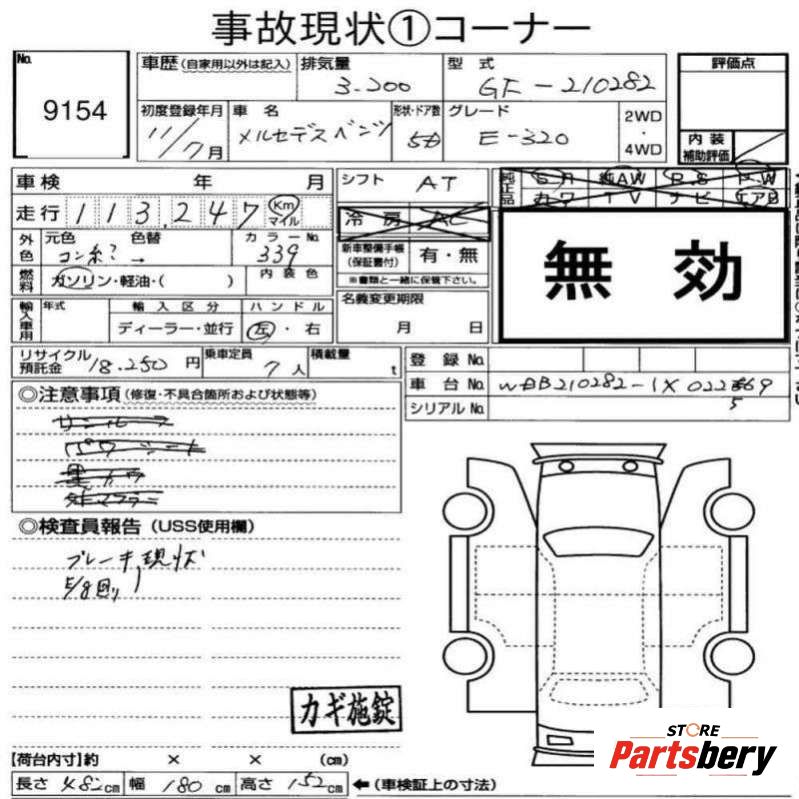 事故現状①コーナー
No.
9154
車歴(自家用以外は記入)
排気量
3.200
型式
GF-210282
評価点
初度登録年月
11/7月
車名
メルセデスベンツ
形状・ドア数
5D
グレード
E-320
2WD
・
4WD
内装
補助評価
車検 年 月
シフト
AT
純正品
純AW
P.S
P.W
カワ
TV
ナビ
エアB
走行
113,247
Km
マイル
冷房
AC
外色
元色
色替
カラーNo.
コン
339
新車整備手帳
(保証書付)
有・無
※書類と一緒に保管下さい。
無効
燃料
ガソリン・軽油・( )
内装色
輸入車用
年式
輸入区分
ハンドル
ディーラー・並行
左・右
名義変更期限
月 日
リサイクル
預託金
18.250円
乗車定員
7人
積載量
t
登録No.
車台No.
WDB210282-1X022
69
5
シリアルNo.
◎注意事項(修復・不具合箇所および状態等)
サンルーフ
パワーシート
黒カワ
◎検査員報告(USS使用欄)
ブレーキ現状
カギ施錠
【荷台内寸】約 × × (cm)
長さ 482cm 幅 180cm 高さ 152cm ←(車検証上の寸法)
STORE
Partsbery